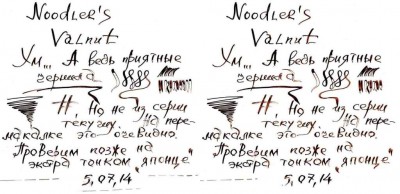 Noodler's
Valnut
Хм... А ведь приятные
чернила
Но не из серии
текучих, на пере-
макалке это очевидно.
Проверим позже на
экстра тонком "японце"
5,07,14
Noodler's
Valnut
Хм... А ведь приятные
чернила
Но не из серии
текучих, на пере-
макалке это очевидно.
Проверим позже на
экстра тонком "японце"
5,07,14